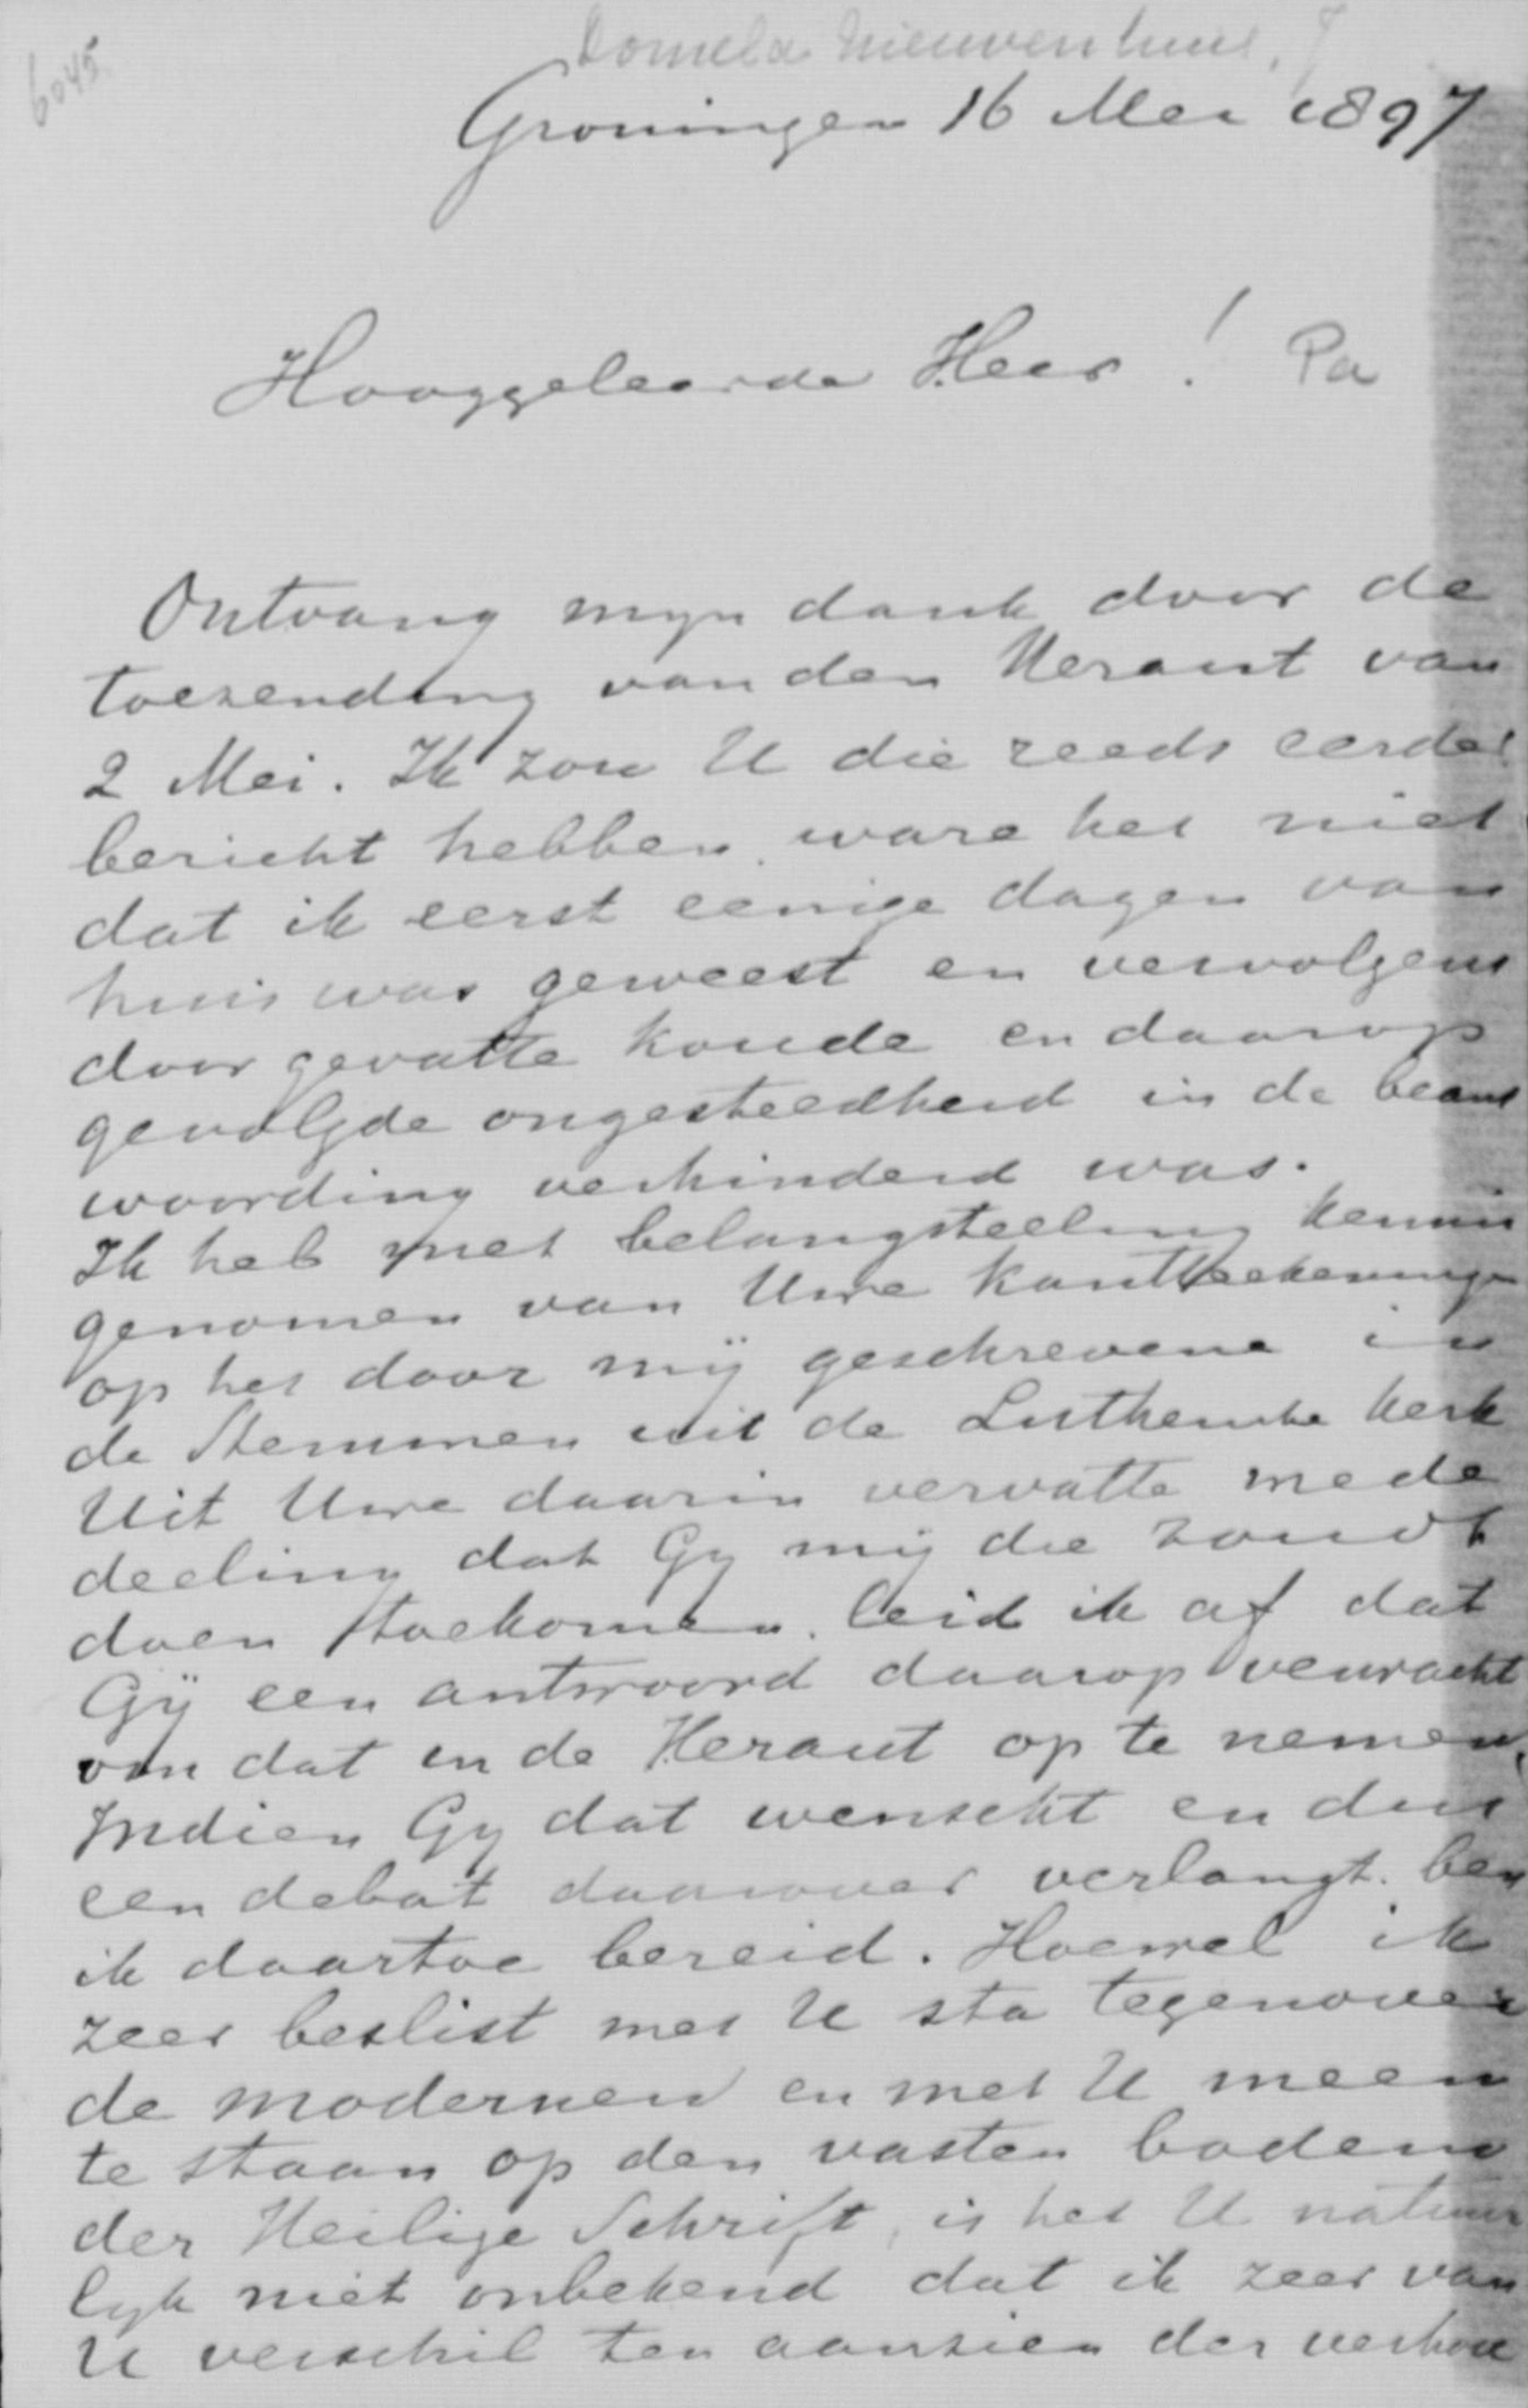 6045
Domela Nieuwenhuis, J
Groningen 16 Mei 1897
Hooggeleerde Heer! Pa
Ontvang mijn dank door de
toezending van den Heraut van
2 Mei. Ik zou U die reeds eerder
bericht hebben, ware het niet
dat ik eerst eenige dagen van
huis was geweest en vervolgens
door gevatte koude en daarop
gevolgde ongesteedheid in de beant
woording verhinderd was.
Ik heb met belangstelling kennis
genomen van Uwe kantteekeningen
op het door mij geschrevene in
de Stemmen uit de Luthersche kerk
Uit Uwe daarin vervatte mede
deeling dat Gy mij die zoudt
doen toekomen, leid ik af dat
Gij een antwoord daarop verwacht
om dat in de Heraut op te nemen.
Indien Gy dat wenscht en dus
een debat daarover verlangt, ben
ik daartoe bereid. Hoewel ik
zeer beslist met U sta tegenover
de modernen en met U meen
te staan op den vasten bodem
der Heilige Schrift, is het U natuur
lyk niet onbekend dat ik zeer van
U verschil ten aanzien der verhou